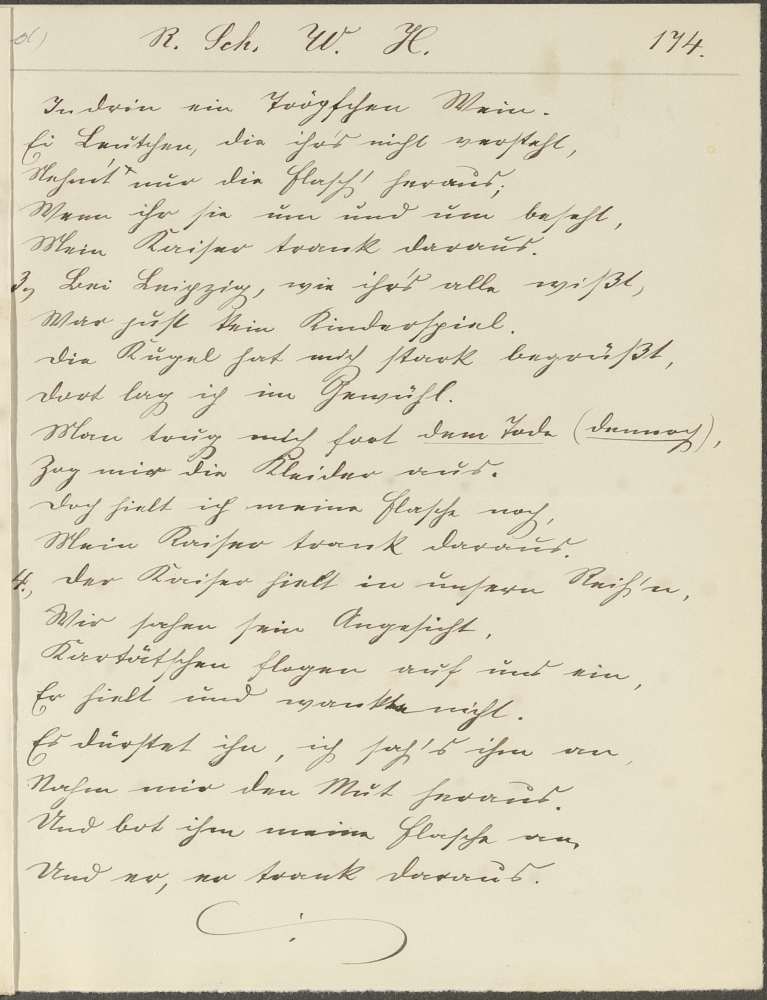 R. Sch. W. H. 174.
In drin ein Tröpfchen Wein.
Ei Leutchen, die ihr's nicht versteht,
Nehmt nur die Flasch' heraus;
Wenn ihr sie um und um beseht,
Mein Kaiser trank daraus.
3., Bei Leipzig, wie ihr's alle wißt,
War just kein Kinderspiel.
Die Kugel hat mich stark begrüßt,
Dort lag ich im Gewühl.
Man trug mich fort dem Tode (dennoch),
Zog mir die Kleider aus.
Doch hielt ich meine Flasche noch,
Mein Kaiser trank daraus.
4., Der Kaiser hielt in unsern Reih'n,
Wir sahen sein Angesicht,
Kartätschen flogen auf uns ein,
Er hielt und wankte nicht.
Es dürstet ihn, ich sah's ihm an,
Nahm mir den Mut heraus.
Und bot ihm meine Flasche an,
Und er, er trank daraus.